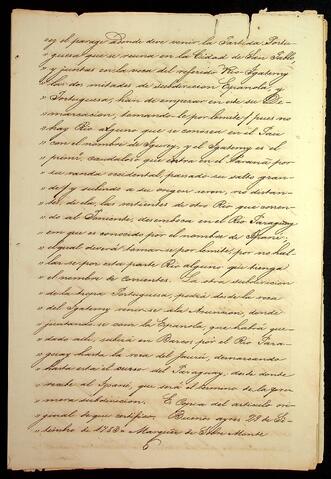 es el parage donde deve venir la Partida Portu-
" guesa que se reuna en la Ciudad de San Pablo
" y juntas en la voca del referido Rio Igatemy
" las dos mitades de subdivicion Española, y
" Portuguesa, han de empezar en este su De-
" marcacion, tomandole por limite / pues no
" hay Rio alguno que se conosca en el Pais
" con el nombre de Igurey, y el Igatemy es el
" primr. caudaloso que entra en el Paraná por
" su vanda occidental, pasado su salto gran-
" de / y subiendo a su origen veran, no distan-
" tes de ella, las vertientes de otro Rio que corrien-
" do al Poniente, desemboca en el Rio Paraguay
" con que es conocido por el nombre de Ipané,
" el qual deverá tomarse por limite, por no hal-
" larse por esta parte Rio alguno que tenga
" el nombre de Corrientes. La otra subdivicion
" de la tropa Portuguesa, podrá desde la voca
" del Igatemy venirse ala Asuncion, donde
" juntandose con la Española, que habrá que-
" dado alli, subirá en Barcos por el Rio Para-
" guay hasta la voca del Jaurú, demarcando
" hasta esta el curso del Paraguay, desde donde
" recibe al Ipané, que será el termino de la pri-
" mera subdivicion. Es Copia del articulo ori-
" ginal de que certifico. Buenos ayres 28 de Se-
" tiembre de 1782 = Marques de